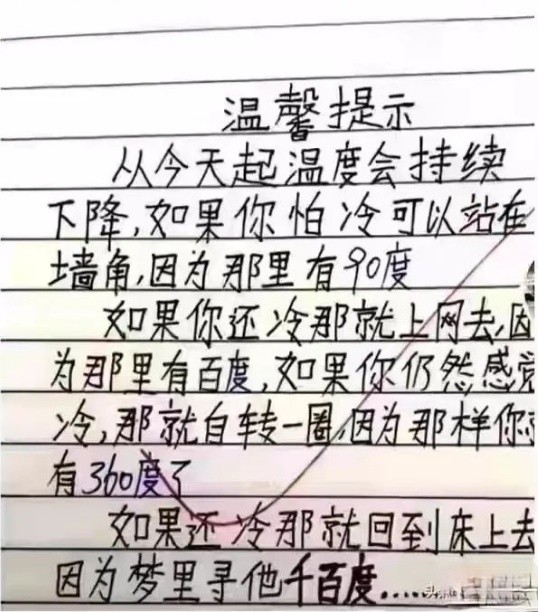 温馨提示
从今天起温度会持续
下降,如果你怕冷可以站在
墙角,因为那里有90度
如果你还冷那就上网去,因
为那里有百度,如果你仍然感觉
冷,那就自转一圈,因为那样你
有360度了
如果还冷那就回到床上去
因为梦里寻他千百度......